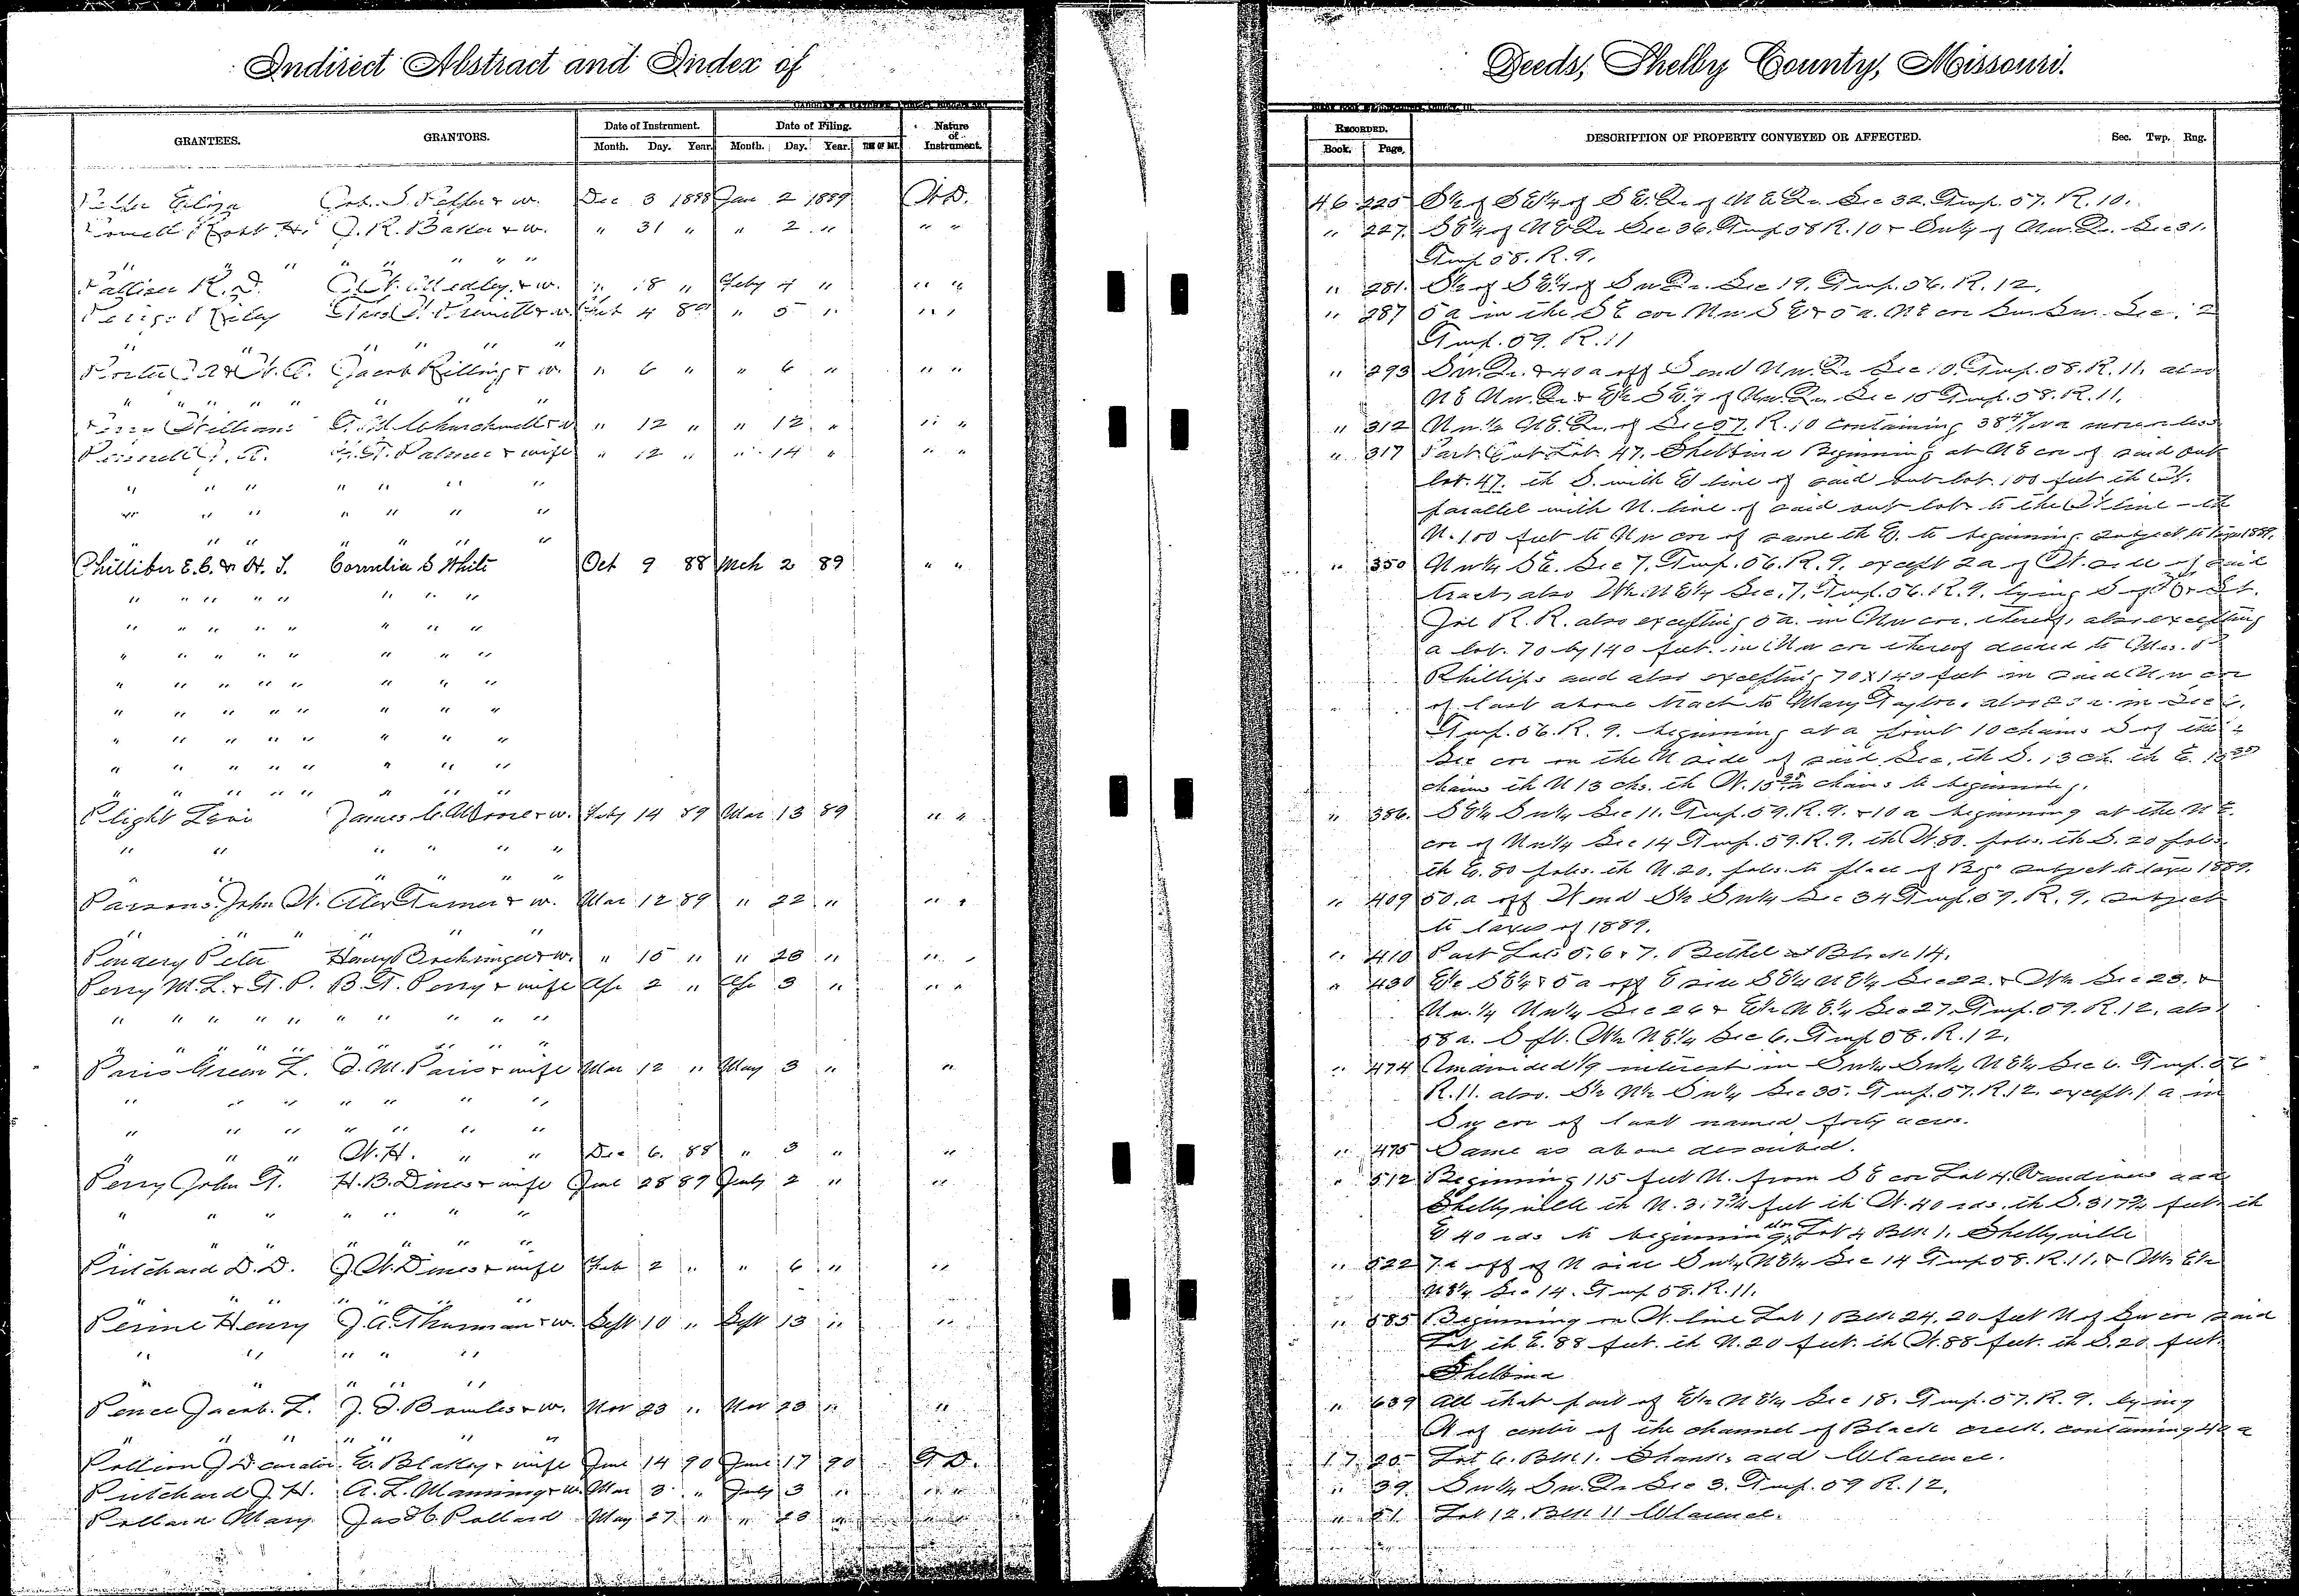 Indirect Abstract and Index of Deeds, Shelby County, Missouri.
GRANTEES. GRANTORS. Date of Instrument. Date of Filing. Nature of Instrument.
Month. Day. Year. Month. Day. Year.
RECORDED. DESCRIPTION OF PROPERTY CONVEYED OR AFFECTED. Sec. Twp. Rng.
Book. Page.
Eliza & w. Dec 3 1888 Jan 2 1889 W.D. 46 225 S½ of SE¼ of SE Qr of NE Qr Sec 32. Twp. 57. R. 10.
J. R. Baker & w. " 31 " " 2 " " " " 227. SE¼ of NE Qr Sec 36. Twp 58 R. 10 & of Nw. Qr. Sec 31.
" " " " " " Twp 58. R. 9.
R. D. Medley & w. " 18 " Feby 4 " " " " 281. S½ of SE¼ of Sw Qr. Sec 19. Twp. 56. R. 12.
Riley & w. Feb 4 89 " 5 " " " " 287 5 a in the SE cor Nw SE & 5 a. NE cor Sw. Sec. 2
" " " " Twp. 59. R. 11
Porter & W. A. Jacob Killing & w. " 6 " " 6 " " " " 293 Sw. Qr. & 40 a off S end Nw. Qr Sec 10. Twp. 58. R. 11. also
" " " " " " " NE Nw. Qr & E½ SE¼ of Nw. Qr Sec 15 Twp. 58. R. 11.
Perry William & w " 12 " " 12 " " " " 312 Nw. ¼ NE. Qr. of Sec 57. R. 10 containing 38 47/100 a more or less
T. Palmer & wife " 12 " " 14 " " " " 317 Part Out Lot 47. Shelbina Beginning at NE cor of said out
" " " " " " " lot. 47. th S. with E line of said out lot. 100 feet th W.
" " " " " " " parallel with N. line of said out lot to the W line - th
" " " " " " " N. 100 feet to Nw cor of same th E. to beginning. subject to taxes 1889.
Philliber E. C. & H. T. Cornelia S White Oct 9 88 Mch 2 89 " " " 350 Nw¼ SE. Sec 7. Twp. 56. R. 9. except 2 a of W. side of said
" " " " " " " " tract, also W½ NE¼ Sec. 7. Twp. 56. R. 9. lying S of H & St.
" " " " " " " " Joe R. R. also excepting 5 a. in Nw cor. thereof, also excepting
" " " " " " " " a lot. 70 by 140 feet. in Nw cor thereof deeded to Mrs.
" " " " " " " " Phillips and also excepting 70 x 140 feet in said Nw cor
" " " " " " " " of last above tract to Mary Taylor, also in Sec
" " " " " " " " Twp. 56. R. 9. beginning at a point 10 chains S of the
" " " " " " " " Sec cor on the N side of said Sec. th S. 13 ch. th E.
" " " " " " " " chains th N 13 chs. th W. chains to beginning.
Plight Levi James C. Moore & w. Feby 14 89 Mar 13 89 " " " 386. SE¼ Sw¼ Sec 11. Twp. 59. R. 9. & 10 a beginning at the NE.
" " " " " " cor of Nw¼ Sec 14 Twp. 59. R. 9. th W. 80. poles. th S. 20 poles.
" " " " " th E. 80 poles. th N. 20. poles. to place of Beg. subject to taxes 1889.
Parsons. John W. Alex Turner & w. Mar 12 89 " 22 " " " " 409 50. a off W end S½ Sw¼ Sec 34 Twp. 57. R. 9. subject
" " " " " to taxes of 1889.
Pendery Peter Henry & w. " 15 " " 23 " " " " 410 Part Lots 5. 6 & 7. Bethel Block 14.
Perry M. L. & T. P. B. T. Perry & wife Apr 2 " Apr 3 " " " " 430 E½ SE¼ & 5 a off E side SE¼ NE¼ Sec 22. & W½ Sec 23. &
" " " " " " " " " Nw. ¼ Nw¼ Sec 26 & E½ NE¼ Sec 27. Twp. 59. R. 12. also
" " " " " " " " " 58 a. W½ NE¼ Sec 6. Twp 58. R. 12.
Paris Green L. J. M. Paris & wife Mar 12 " May 3 " " " 474 Undivided 1/9 interest in Sw¼ Sw¼ NE¼ Sec 6. Twp. 56
" " " " " " " R. 11. also. S½ N½ Sw¼ Sec 35. Twp. 57. R. 12. except. 1 a in
" " " " " " " Sw cor of last named forty acres.
" " " W. H. " " Dec 6. 88 " 3 " " " 475 Same as above described.
Perry John T. H. B. Dines & wife June 28 89 July 2 " " " 512 Beginning 115 feet N. from SE cor Lot 4. add
" " " " " " " Shelbyville th N. feet th W. 40 rds. th S. 317¾ feet th
" " " " " " E 40 rds to beginning, Lot 4 Blk 1. Shelbyville
Pritchard D. D. J. W. Dines & wife Feb 2 " " 6 " " " 522 7 a off of N side Sw¼ NE¼ Sec 14 Twp 58. R. 11. & W½ E½
" " " " " NE¼ Sec 14. Twp 58. R. 11.
Perine Henry J. A. Thurman & w. Sept 10 " Sept 13 " " " 585 Beginning on W. line Lot 1 Blk 24. 20 feet N of Sw cor said
" " " " " Lot th E. 88 feet. th N. 20 feet. th W. 88 feet. th S. 20 feet.
" " " " " Shelbina
Pence Jacob. L. J. D. Bowles & w. Nov 23 " Nov 23 " " " 639 All that part of E½ NE¼ Sec 18. Twp. 57. R. 9. lying
" " " " " " W of center of the channel of Black creek. containing
E. Blakey & wife June 14 90 June 17 90 T D. 17 25 Lot 6. Blk 1. Shanks add Clarence.
Pritchard J. H. A. L. Manning & w. Mar 3 " July 3 " " " " 39. Sw¼ Sw. Qr Sec 3. Twp. 59 R. 12.
Pollard Mary Jas C. Pollard May 27 " " 23 " " " 51. Lot 12. Blk 11 Clarence.